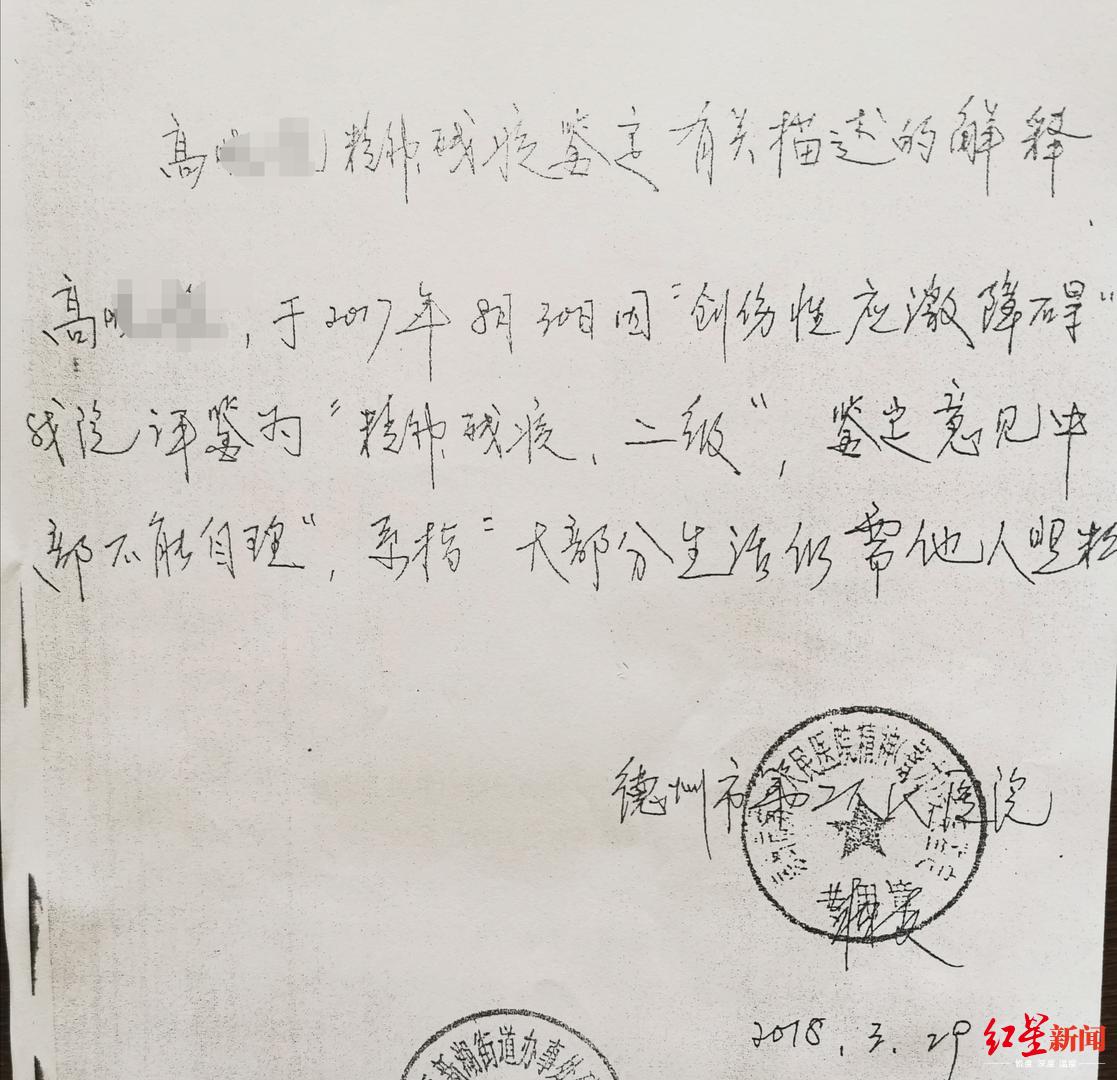 高 精神残疾鉴定有关描述的解释
高 ，于2017年8月30日因"创伤性应激障碍"
我院评鉴为"精神残疾，二级"，鉴定意见中
部不能自理"，系指"大部分生活仍需他人照料
人民医院精神
德州市第二人民医院
2018.3.29
新湖街道办事处
红星新闻
锐度 深度 温度